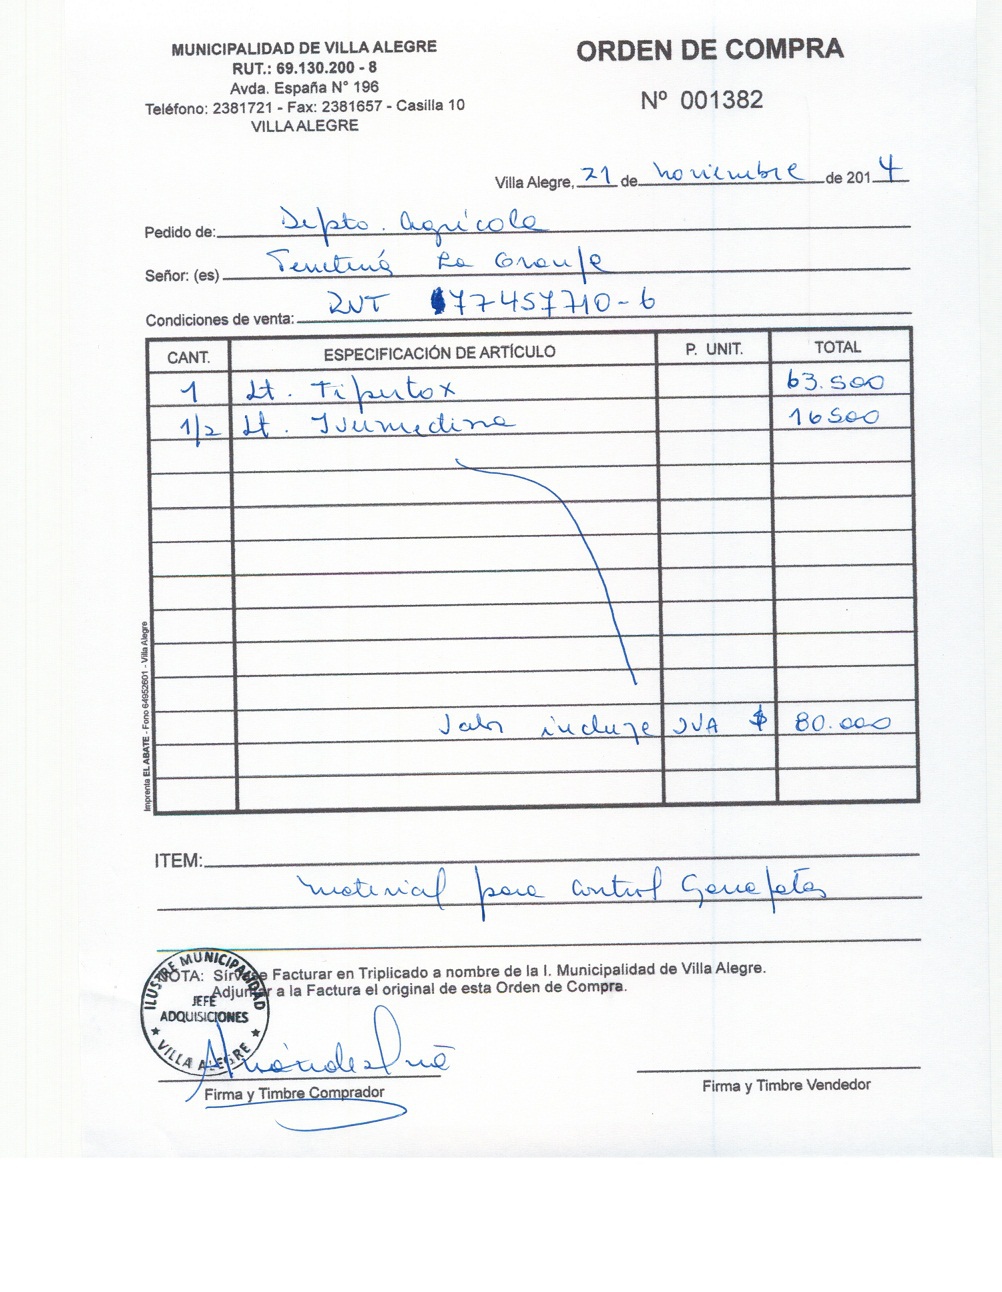 MUNICIPALIDAD DE VILLA ALEGRE
RUT.: 69.130.200 - 8
Avda. España N° 196
Teléfono: 2381721 - Fax: 2381657 - Casilla 10
VILLA ALEGRE
ORDEN DE COMPRA
Nº 001382
Villa Alegre, 21 de noviembre de 2014
Pedido de: Depto. Agrícola
Señor: (es) La Granja
RUT 77457710-6
Condiciones de venta:
CANT. ESPECIFICACIÓN DE ARTÍCULO P. UNIT. TOTAL
1 Lt. 63.500
1/2 Lt. 16500
Valor incluye IVA $ 80.000
Imprenta EL ABATE - Fono 64952601 - Villa Alegre
ITEM:
Material para control Garrapatas
NOTA: Sírvase Facturar en Triplicado a nombre de la I. Municipalidad de Villa Alegre.
Adjuntar a la Factura el original de esta Orden de Compra.
ILUSTRE MUNICIPALIDAD
JEFE
ADQUISICIONES
VILLA ALEGRE
Firma y Timbre Comprador
Firma y Timbre Vendedor